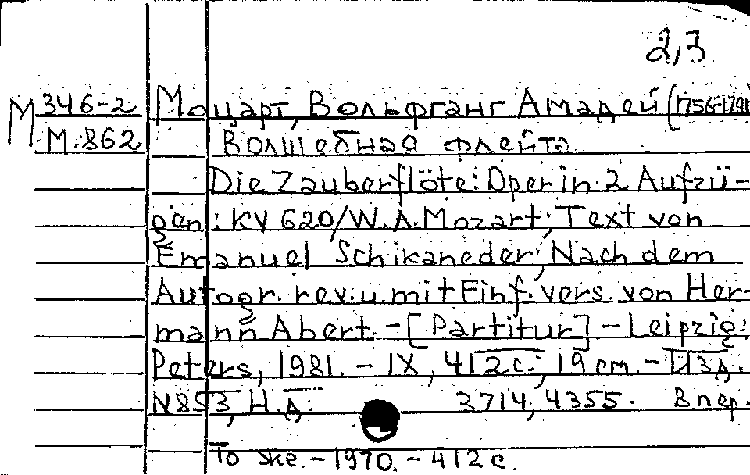 2,3
М 346-2 Моцарт, Вольфганг Амадей (1756-1791
М.862 Волшебная флейта
Die Zauberflöte: Oper in 2 Aufzü-
gen: KV 620/W.A.Mozart; Text von
Emanuel Schikaneder; Nach dem
Autogr. rev. u. mit Einf. vers. von Her-
mann Abert. - [Partitur] - Leipzig:
Peters, 1981. - IX, 412 с.; 19 cm. - Изд.
N 853, Н.Д. 3714, 4355. В пер.
То же. - 1970. - 412 с.